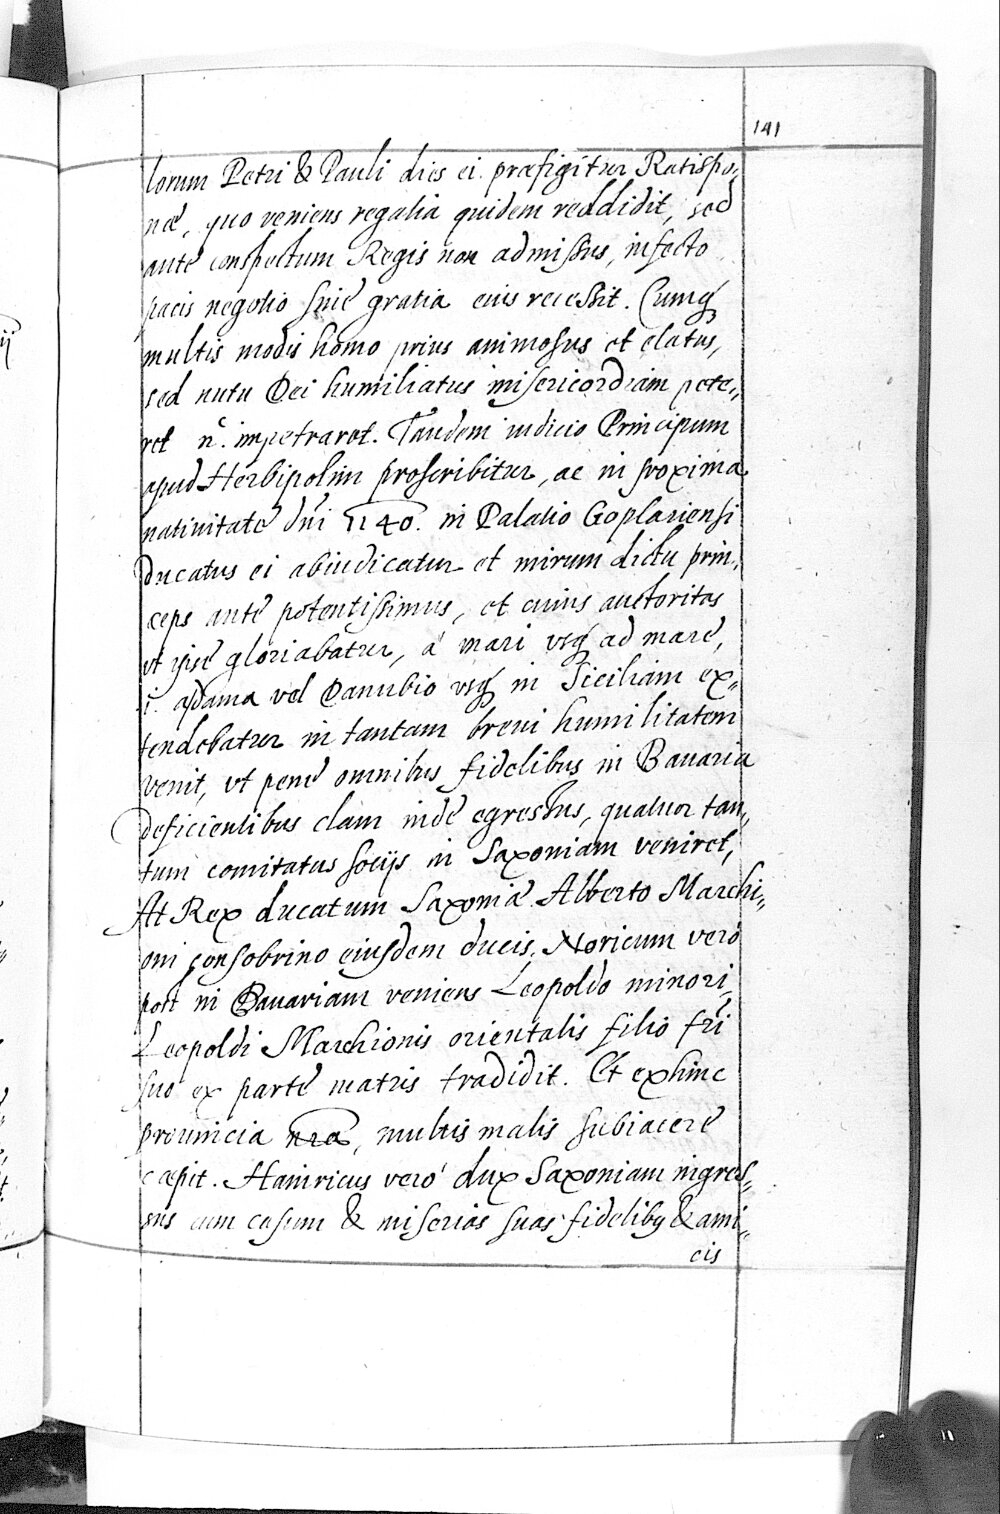 141
lorum Petri & Pauli dies ei præfigitur Ratispo„
næ, quo veniens regalia quidem reddidit, sed
ante conspectum Regis non admissus, infecto
pacis negotio sine gratia eius recessit. Cumq́
multis modis homo prius animosus et elatus,
sed nutu Dei humiliatus misericordiam pete„
ret n̄. impetraret. Tandem iudicio Principum
apud Herbipolim proscribitur, ac in proxima
natiuitate dn̄i 1140. in Palatio Goslariensi
Ducatus ei abiudicatur et mirum dictu prin„
ceps ante potentissimus, et cuius auctoritas
vt ipse gloriabatur, á mari vsq́ ad mare,
i. a dama vel Danubio vsq́ in Siciliam ex„
tendebatur in tantam breui humilitatem
venit, vt pene omnibus fidelibus in Bauaria
deficientibus clam inde egressus, quatuor tan„
tum comitatus socijs in Saxoniam veniret,
At Rex ducatum Saxoniæ Alberto Marchi„
oni consobrino eiusdem ducis. Noricum veró
post in Bauariam veniens Leopoldo minori,
Leopoldi Marchionis orientalis filio fr̄i
suo ex parte matris tradidit. Et exhinc
prouincia nr̄a, multis malis subiacere
cæpit. Hainricus veró dux Saxoniam ingres„
sus cum casum & miserias suas fidelibq & ami„
cis